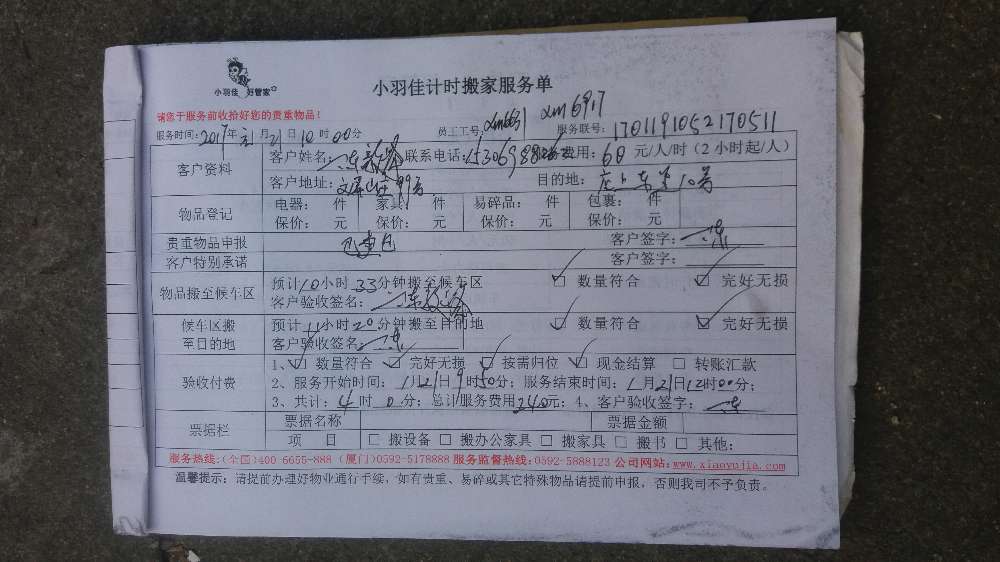 小羽佳 好管家
小羽佳计时搬家服务单
请您于服务前收拾好您的贵重物品！
服务时间：2017年 元 月 21 日 10 时 00 分 员工工号： xm6917 服务联号：1701191052170511
客户资料 客户姓名： 联系电话： 费用：60 元/人/时（2 小时起/人）
客户地址： 99号 目的地： 10号
物品登记 电器： 件 家具： 件 易碎品： 件 包裹： 件
保价： 元 保价： 元 保价： 元 保价： 元
贵重物品申报 客户签字：
客户特别承诺 客户签字：
物品搬至候车区 预计10小时33分钟搬至候车区 数量符合 完好无损
客户验收签名：
候车区搬至目的地 预计11小时20分钟搬至目的地 数量符合 完好无损
客户验收签名：
验收付费 1、 数量符合 完好无损 按需归位 现金结算 转账汇款
2、服务开始时间：1月21日9时50分；服务结束时间：1月21日12时00分；
3、共计：4时0分；总计服务费用240元；4、客户验收签字：
票据栏 票据名称 票据金额
项 目 搬设备 搬办公家具 搬家具 搬书 其他：
服务热线：(全国)400-6655-888 (厦门)0592-5178888 服务监督热线：0592-5888123 公司网站：www.xiaoyujia.com
温馨提示：请提前办理好物业通行手续，如有贵重、易碎或其它特殊物品请提前申报，否则我司不予负责。